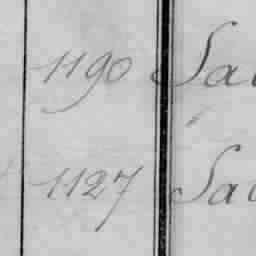 1190 Sa
1127 Sa